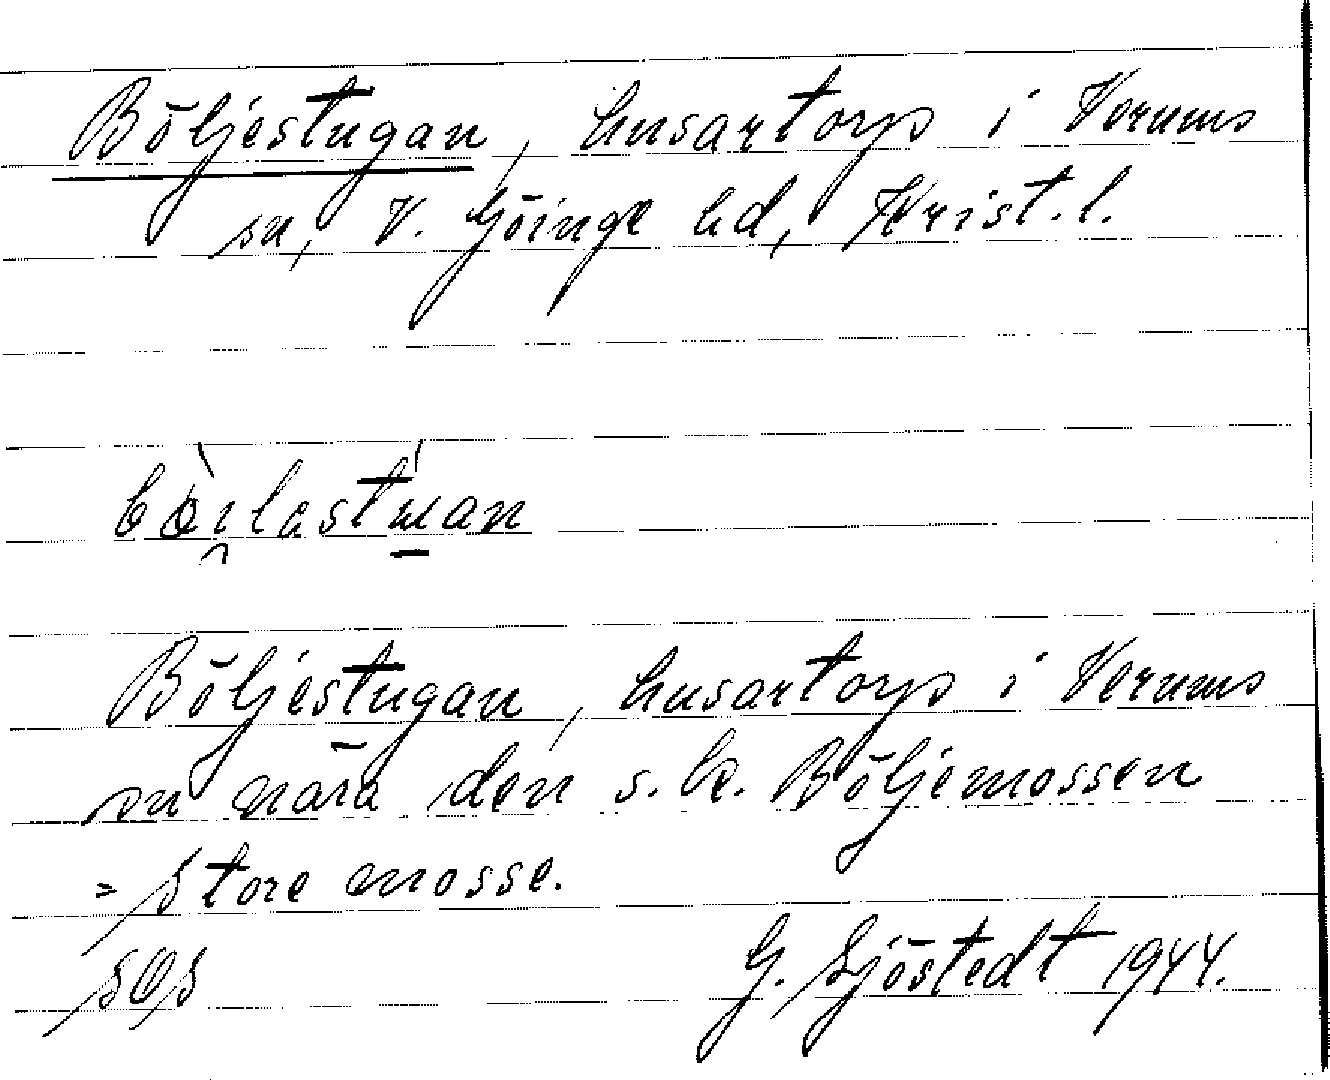 Böljestugan, husartorp i Verums
sn, V. Göinge hd, Krist. l.
Böljestugan, husartorp i Verums
sn nära den s. k. Böljemossen
= Store mosse.
SOS G. Sjöstedt 1944.